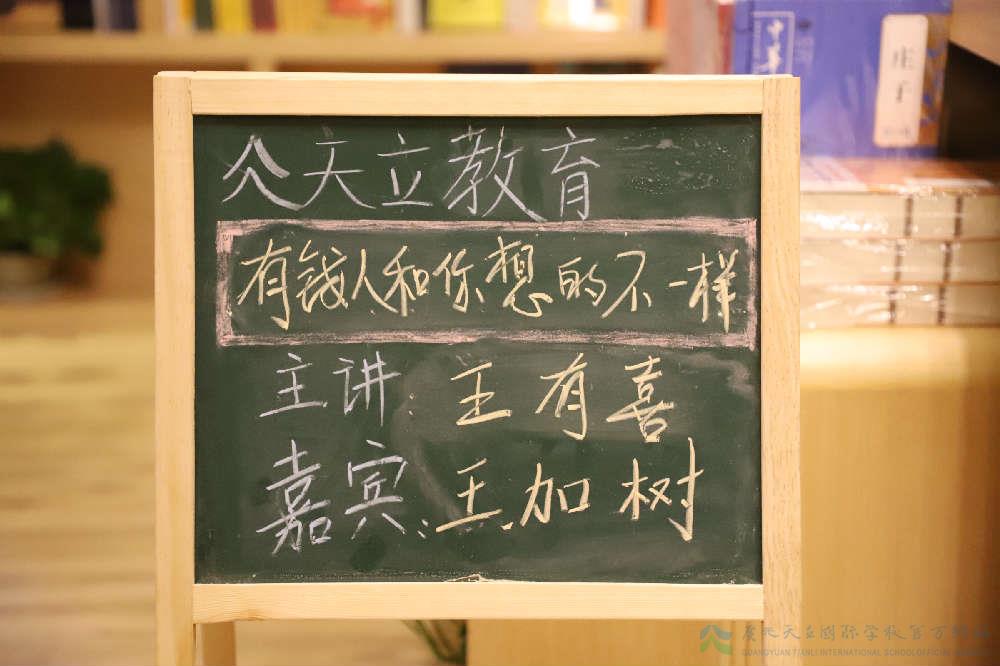 天立教育
有钱人和你想的不一样
主讲：王有喜
嘉宾：王加树
中华
庄子
广元天立国际学校官方网站
GUANGYUAN TIANLI INTERNATIONAL SCHOOL OFFICIAL